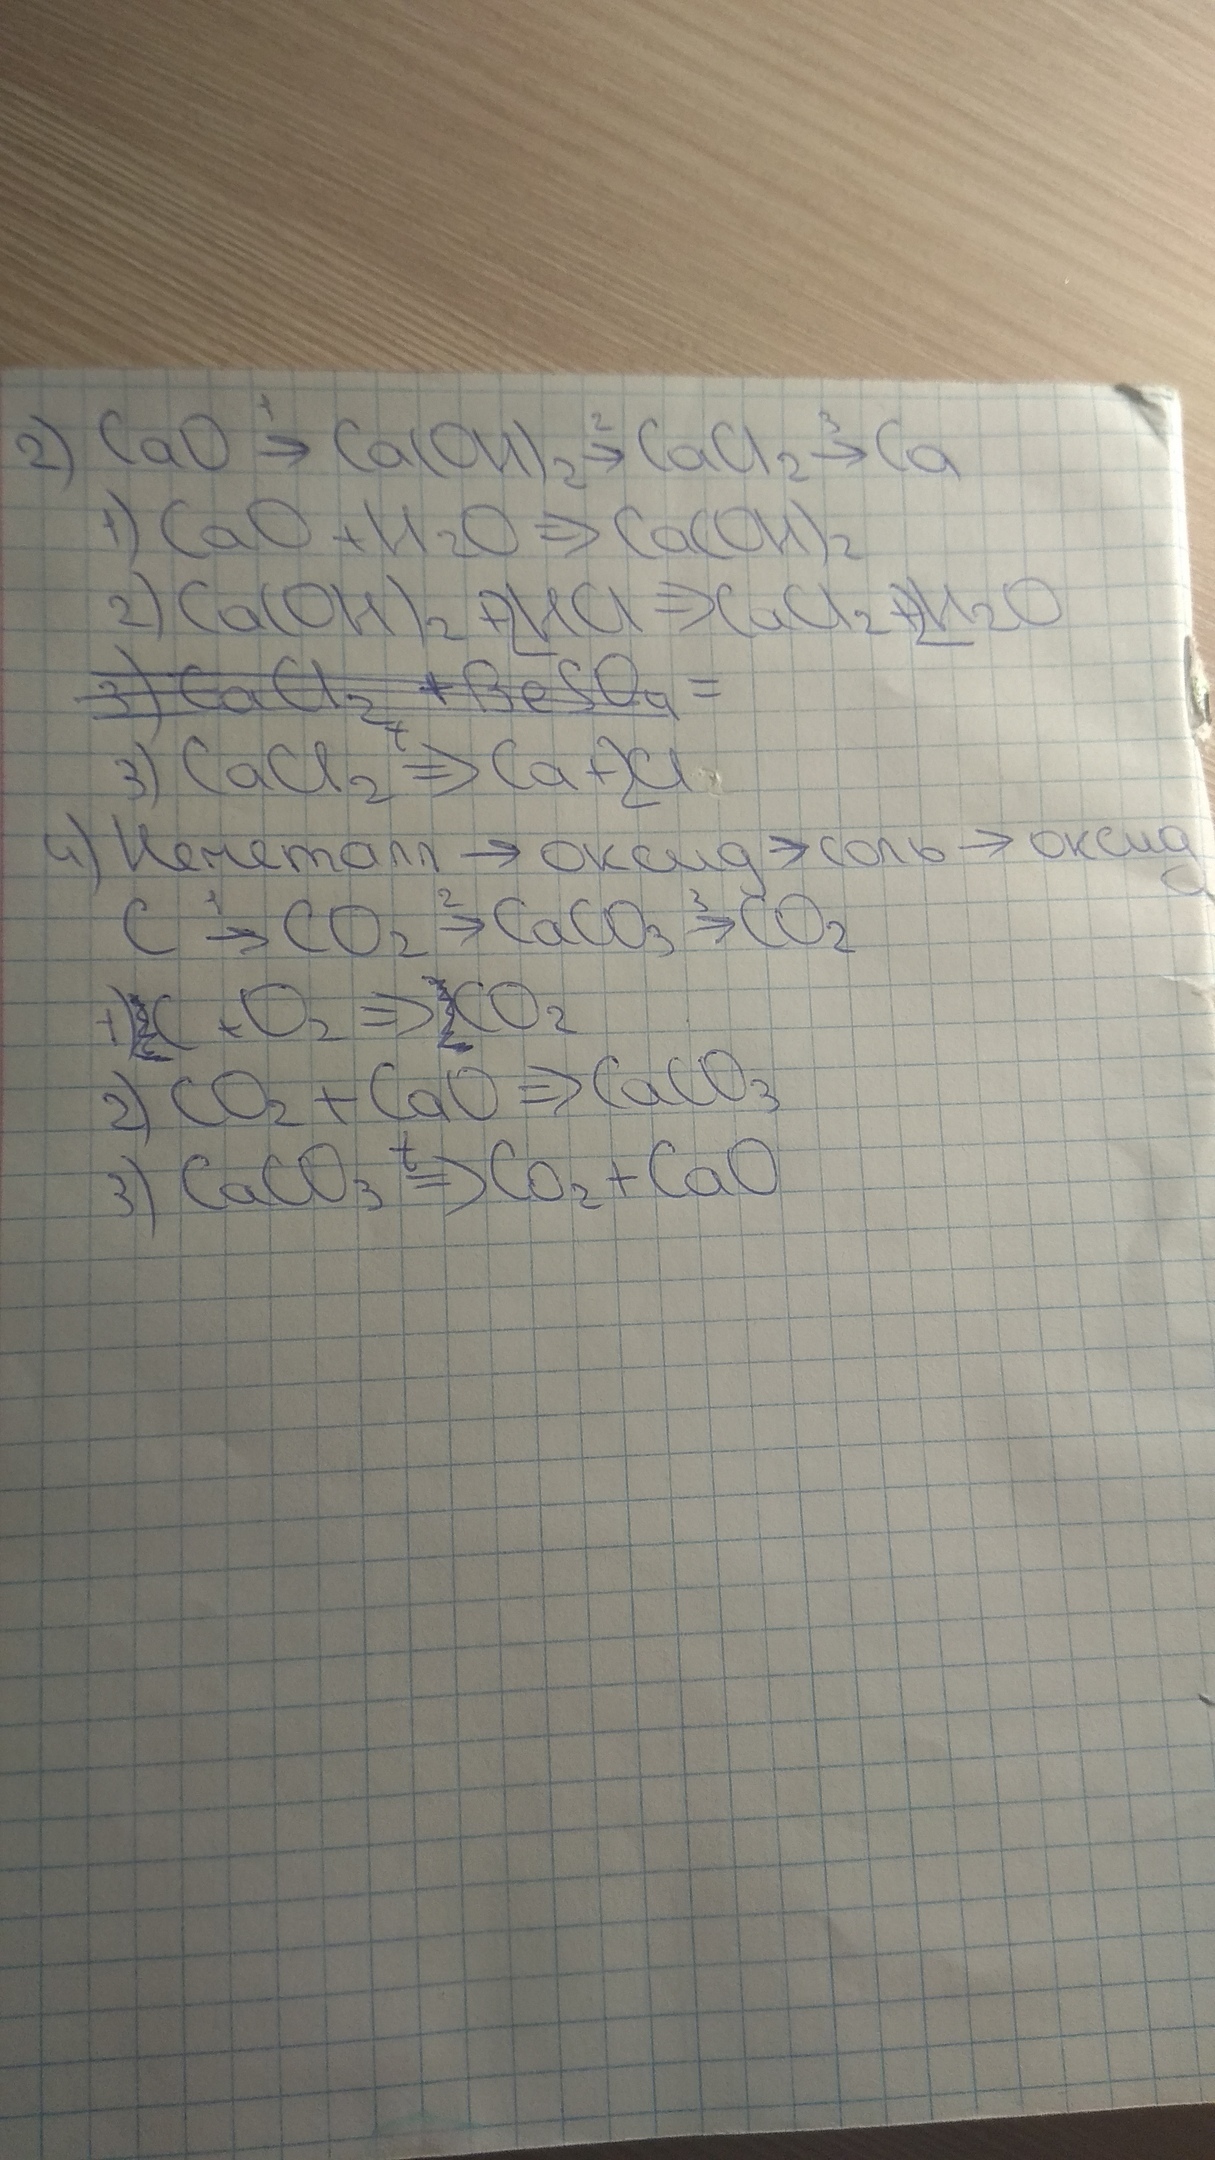 2) CaO →¹ Ca(OH)₂ →² CaCl₂ →³ Ca
1) CaO + H₂O ⇒ Ca(OH)₂
2) Ca(OH)₂ + 2HCl ⇒ CaCl₂ + 2H₂O
3) CaCl₂ + BeSO₄ =
3) CaCl₂ ᵗ⇒ Ca + 2Cl
4) Неметалл → оксид → соль → оксид
C →¹ CO₂ →² CaCO₃ →³ CO₂
1) C + O₂ ⇒ CO₂
2) CO₂ + CaO ⇒ CaCO₃
3) CaCO₃ ᵗ⇒ CO₂ + CaO